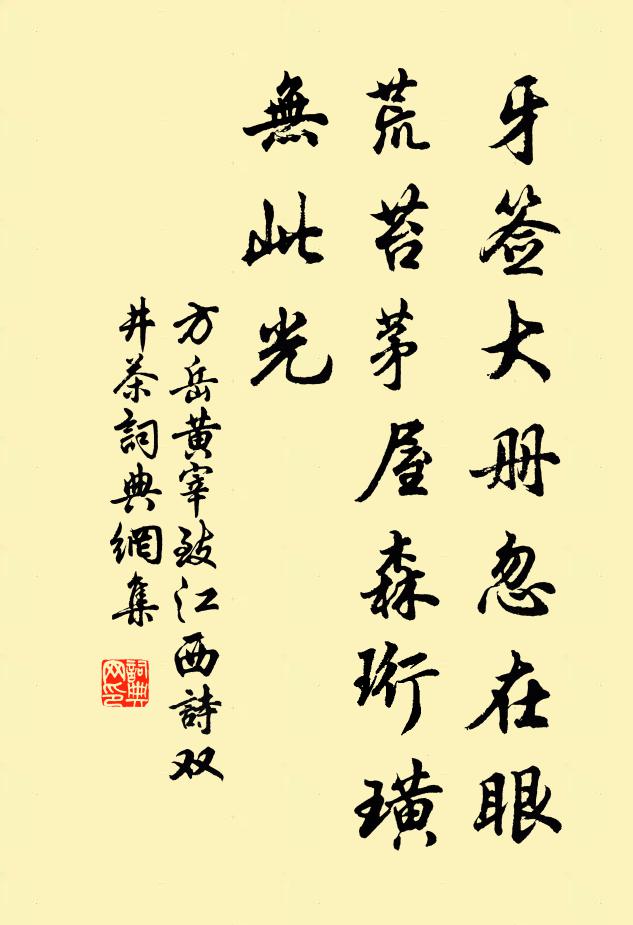 牙签大册忽在眼
荒苔茅屋森珩璜
無此光
方岳黄宰致江西詩双
井茶詞典網集
詞典网印